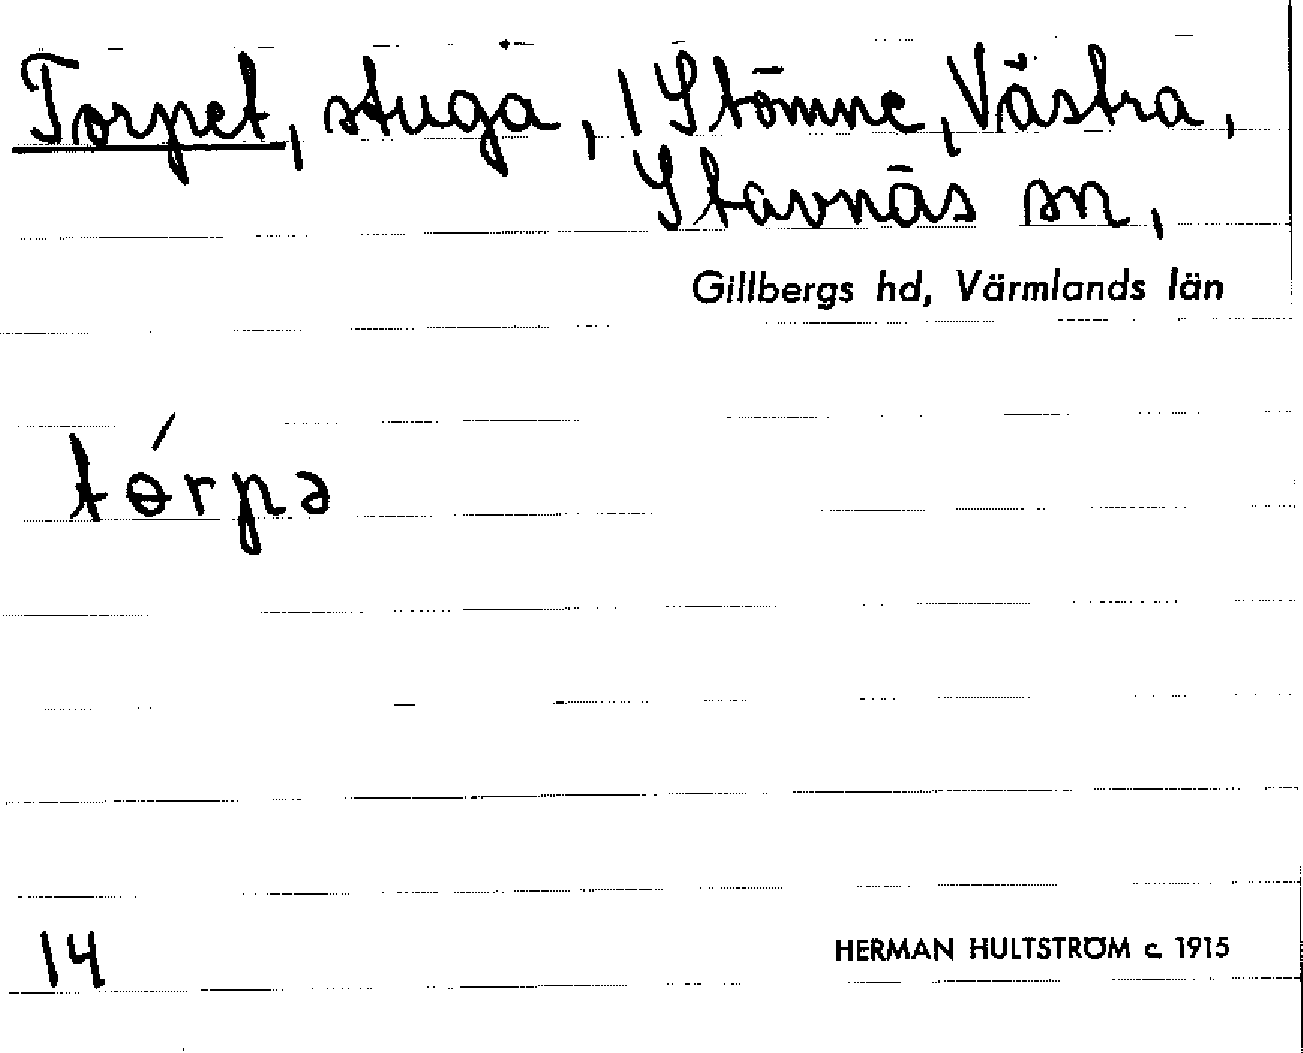 Torpet, stuga, i Stömne, Västra,
Stavnäs sn,
Gillbergs hd, Värmlands län
tɵ́rpə
14
HERMAN HULTSTRÖM c. 1915